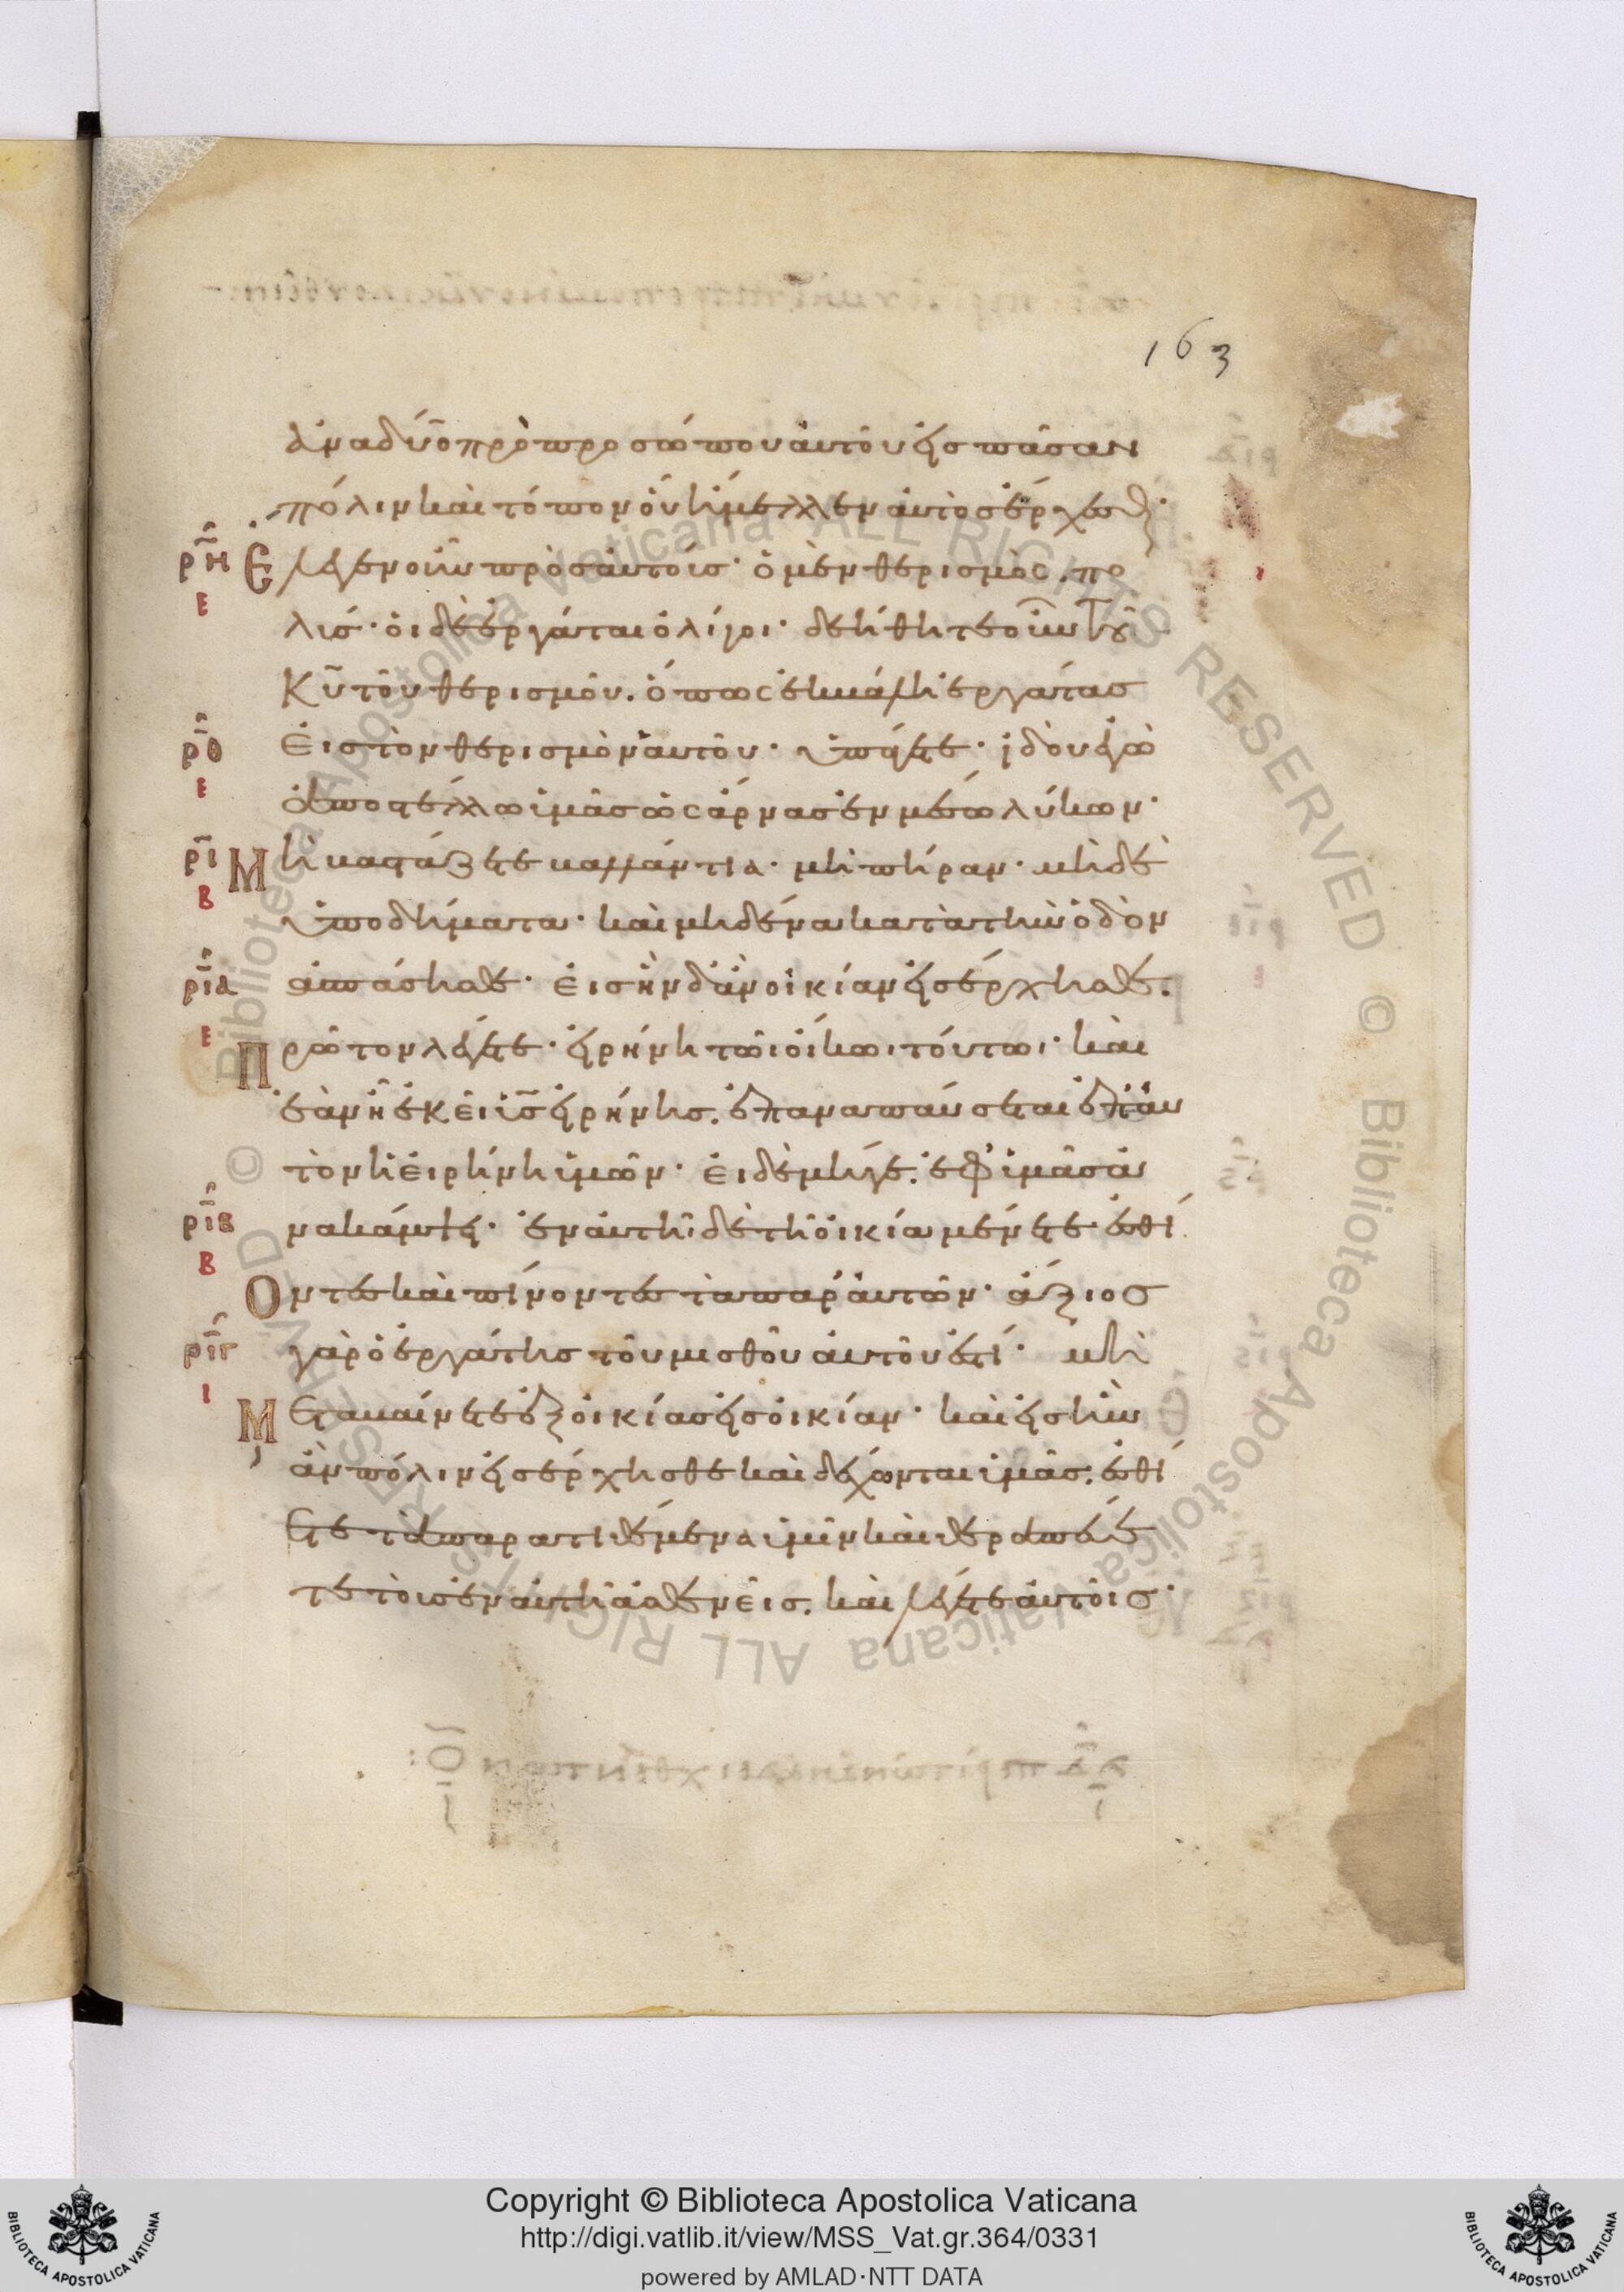 163
ἀναδύο πρὸ προσώπου αὐτοῦ εἰς πᾶσαν
πόλιν καὶ τόπον οὗ ἤμελλεν αὐτὸς ἔρχεσθ
ρη Ε λεγεν οὖν πρὸς αὐτούς· ὁ μὲν θερισμὸς πο
Ε
λύς· οἱ δὲ ἐργάται ὀλίγοι· δεήθητε οὖν τοῦ
κ̅υ̅ τοῦ θερισμοῦ. ὅπως ἐκβάλῃ ἐργάτας
ρθ εἰς τὸν θερισμὸν αὐτοῦ· ὑπάγετε· ἰδοὺ ἐγὼ
Ε
ἀποστέλλω ὑμᾶς ὡς ἄρνας ἐν μέσω λύκων·
ρι Μ ὴ βαστάζετε βαλλάντια· μὴ πήραν· μηδὲ
Β
ὑποδήματα· καὶ μηδένα κατὰ τὴν ὁδὸν
ρια ἀσπάσησθε· εἰς ἣν δ' ἂν οἰκίαν εἰσέρχησθε.
Ε
Π ρῶτον λέγετε· εἰρήνη τῶι οἴκωι τούτωι· καὶ
ἐὰν ἦ ἐκεῖ υ̅ς̅ εἰρήνης. ἐπαναπαύσεται ἐπ' αυ
τὸν ἡ εἰρήνη ὑμῶν· εἰ δὲ μήγε. ἐφ' ὑμᾶς ἀ
ριβ νακάμψει· ἐν αὐτῆ δὲ τῆ οἰκία μένετε· ἐσθί
Β
Ο ντες καὶ πίνοντες τὰ παρ' αὐτῶν· ἄξιος
ριγ γὰρ ὁ ἐργάτης τοῦ μισθοῦ αὐτοῦ ἐστί· μὴ
Ι
Μ εταβαίνετε ἐξ οἰκίας εἰς οἰκίαν· καὶ εἰς ἣν
ἂν πόλιν εἰσέρχησθε καὶ δέχωνται ὑμᾶς. ἐσθί
ετε τὰ παρατιθέμενα ὑμῖν καὶ θεραπεύε
τε τοὺς ἐν αὐτῆ ἀσθενεῖς. καὶ λέγετε αὐτοῖς·
Copyright © Biblioteca Apostolica Vaticana
http://digi.vatlib.it/view/MSS_Vat.gr.364/0331
powered by AMLAD·NTT DATA